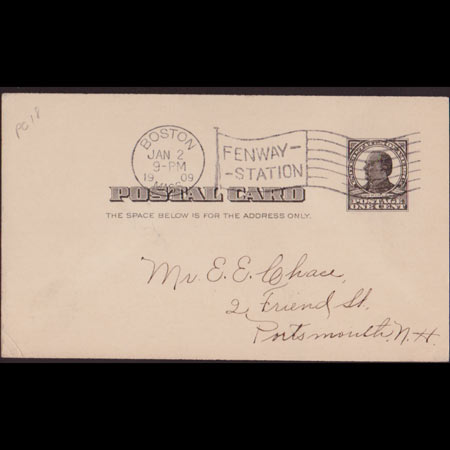 PC18
BOSTON
JAN 2
9-PM
19 09
MASS.
FENWAY-
-STATION
POSTAL CARD
THE SPACE BELOW IS FOR THE ADDRESS ONLY.
POSTAGE
ONE CENT
Mr. E. E. Chase,
2 Friend St.
Portsmouth, N.H.